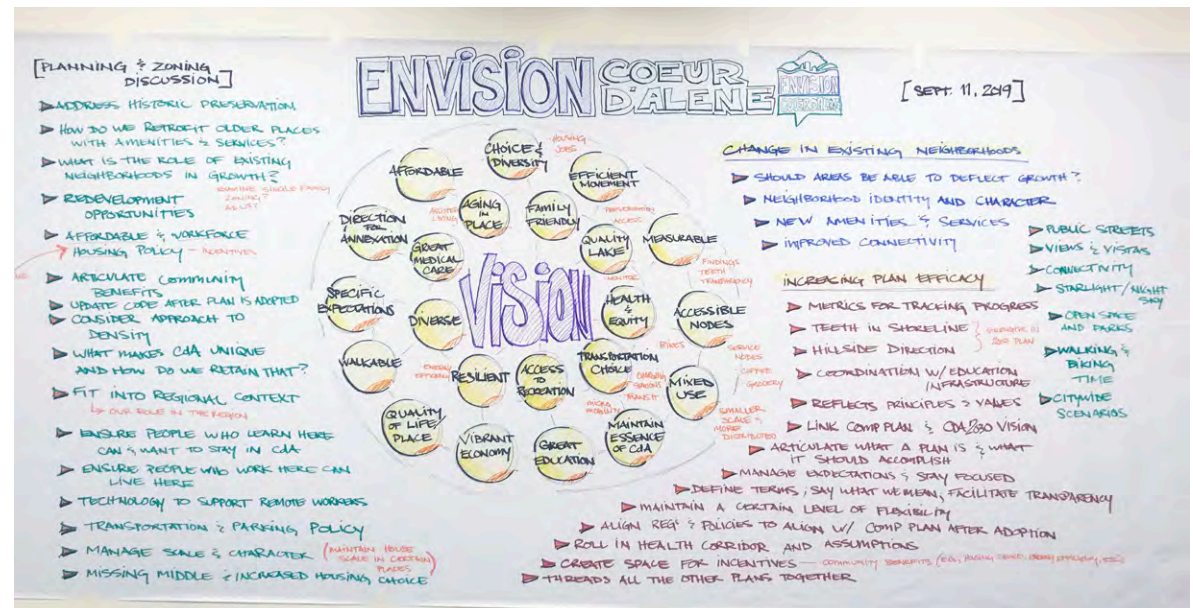 [PLANNING & ZONING
DISCUSSION]
ADDRESS HISTORIC PRESERVATION
HOW DO WE RETROFIT OLDER PLACES
WITH AMENITIES & SERVICES?
WHAT IS THE ROLE OF EXISTING
NEIGHBORHOODS IN GROWTH?
EXAMINE SINGLE FAMILY
ZONING?
ADUS?
REDEVELOPMENT
OPPORTUNITIES
AFFORDABLE & WORKFORCE
HOUSING POLICY - INCENTIVES
ARTICULATE COMMUNITY
BENEFITS
UPDATE CODE AFTER PLAN IS ADOPTED
CONSIDER APPROACH TO
DENSITY
WHAT MAKES CdA UNIQUE
AND HOW DO WE RETAIN THAT?
FIT INTO REGIONAL CONTEXT
OUR ROLE IN THE REGION
ENSURE PEOPLE WHO LEARN HERE
CAN & WANT TO STAY IN CdA
ENSURE PEOPLE WHO WORK HERE CAN
LIVE HERE
TECHNOLOGY TO SUPPORT REMOTE WORKERS
TRANSPORTATION & PARKING POLICY
MANAGE SCALE & CHARACTER (MAINTAIN HOUSE
SCALE IN CERTAIN
PLACES)
MISSING MIDDLE & INCREASED HOUSING CHOICE
ENVISION COEUR
D'ALENE
ENVISION
[SEPT. 11, 2019]
CHOICE &
DIVERSITY
HOUSING
JOBS
AFFORDABLE
EFFICIENT
MOVEMENT
AGING
IN
PLACE
ASSISTED
LIVING
FAMILY
FRIENDLY
DIRECTION
FOR
ANNEXATION
GREAT
MEDICAL
CARE
QUALITY
LAKE
ACCESS
MONITOR
MEASURABLE
FINDINGS
TEETH
TRANSPARENCY
SPECIFIC
EXPECTATIONS
DIVERSE
VISION
HEALTH
&
EQUITY
ACCESSIBLE
NODES
BIKES
SERVICE
NODES
COFFEE
GROCERY
WALKABLE
ENERGY
EFFICIENCY
RESILIENT
ACCESS
TO
RECREATION
TRANSPORTATION
CHOICE
TRANSIT
MICRO
MOBILITY
CHARGING
STATIONS
MIXED
USE
SMALLER
SCALE &
MORE
DISTRIBUTED
QUALITY
OF LIFE/
PLACE
VIBRANT
ECONOMY
GREAT
EDUCATION
MAINTAIN
ESSENCE
OF CdA
CHANGE IN EXISTING NEIGHBORHOODS
SHOULD AREAS BE ABLE TO DEFLECT GROWTH?
NEIGHBORHOOD IDENTITY AND CHARACTER
NEW AMENITIES & SERVICES
IMPROVED CONNECTIVITY
INCREASING PLAN EFFICACY
METRICS FOR TRACKING PROGRESS
TEETH IN SHORELINE
HILLSIDE DIRECTION
STRENGTH IN
PLAN
COORDINATION W/ EDUCATION
INFRASTRUCTURE
REFLECTS PRINCIPLES & VALUES
LINK COMP PLAN & CDA 2030 VISION
ARTICULATE WHAT A PLAN IS & WHAT
IT SHOULD ACCOMPLISH
MANAGE EXPECTATIONS & STAY FOCUSED
DEFINE TERMS; SAY WHAT WE MEAN, FACILITATE TRANSPARENCY
MAINTAIN A CERTAIN LEVEL OF FLEXIBILITY
ALIGN REGS & POLICIES TO ALIGN W/ COMP PLAN AFTER ADOPTION
ROLL IN HEALTH CORRIDOR AND ASSUMPTIONS
CREATE SPACE FOR INCENTIVES - COMMUNITY BENEFITS (E.G., HOUSING CHOICE, ENERGY EFFICIENCY, ETC.)
THREADS ALL THE OTHER PLANS TOGETHER
PUBLIC STREETS
VIEWS & VISTAS
CONNECTIVITY
STARLIGHT/NIGHT
SKY
OPEN SPACE
AND PARKS
WALKING &
BIKING
TIME
CITYWIDE
SCENARIOS